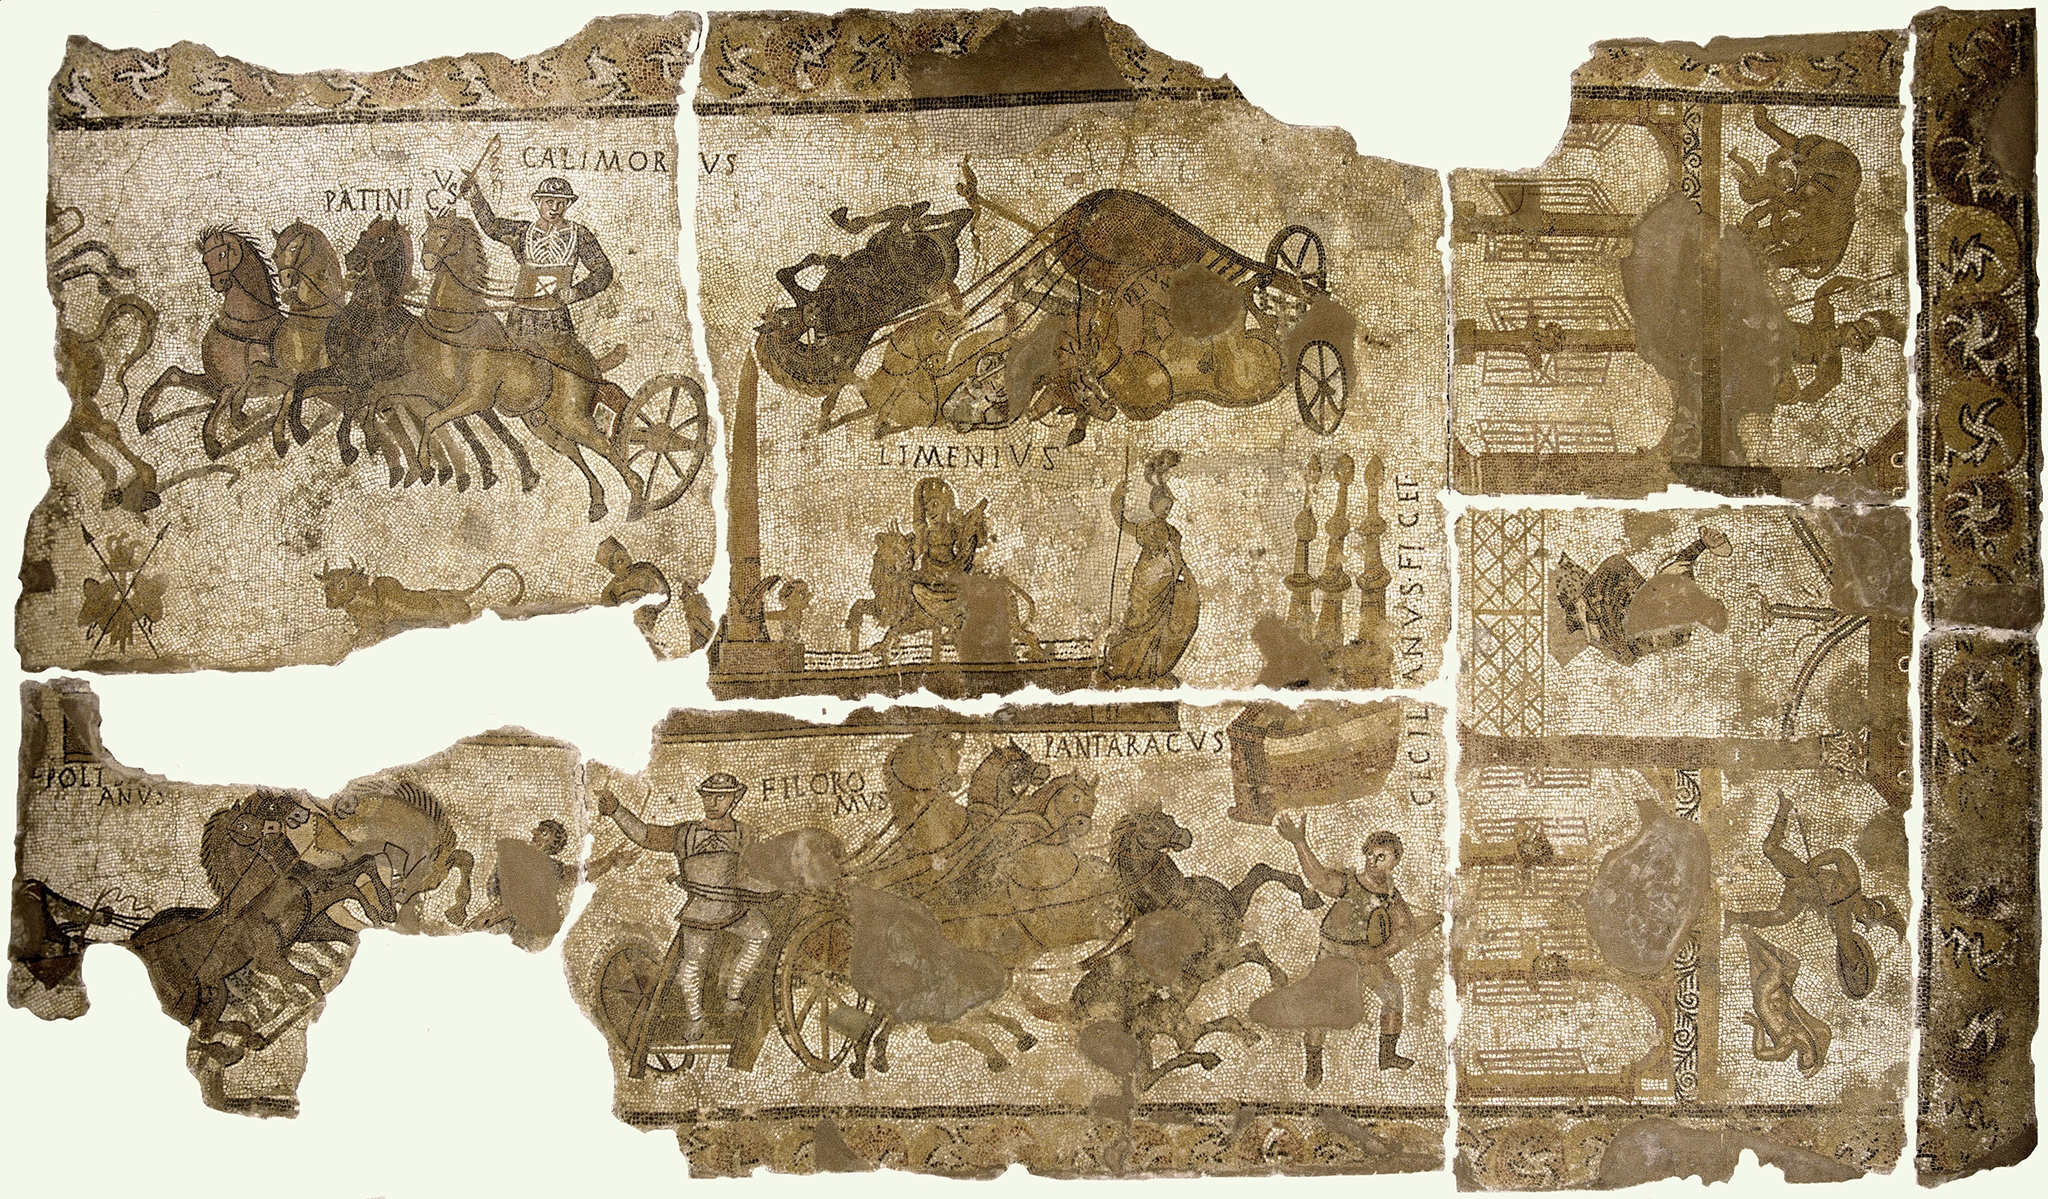 CALIMORVS
PATINICVS
LIMENIVS
CECILIANVS FICET
PANTARACVS
FILORO
MVS
POLI
ANVS